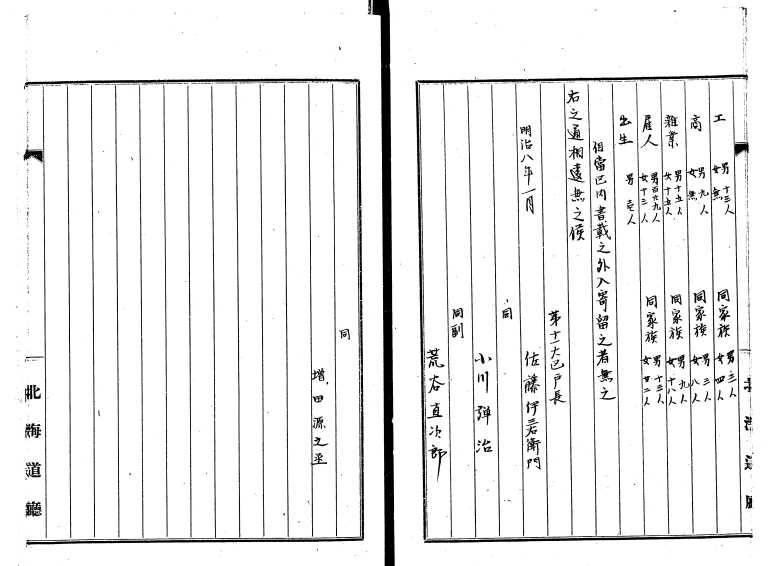 工 男 十三人 女 無 同家族 男 三人 女 四人
商 男 九人 女 無 同家族 男 三人 女 八人
雜業 男十五人 女十五人 同家族 男 九人 女 十八人
雇人 男百六九人 女十三人 同家族 男 十三人 女 廿二人
出生 男 壱人
但當区内書載之外入寄留之者無之
右之通相違無之候
明治八年一月
第十一大区戸長
佐藤伊三右衛門
同
小川弾治
同副
荒谷直次郎
同
増田源之丞
北海道廳